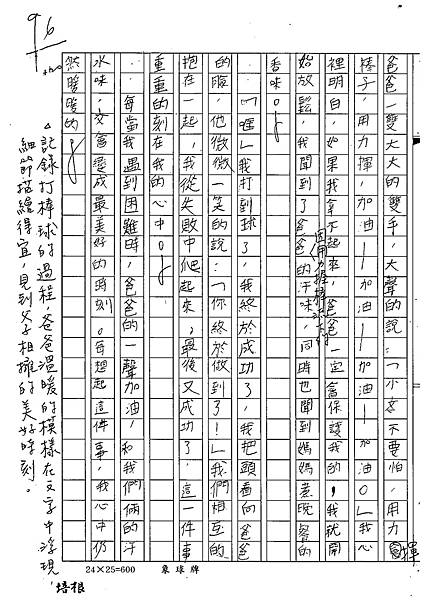 96
爸爸一雙大大的雙手，大聲的說：「小玄不要怕，用力揮
棒子，用力揮，加油！加油！加油！加油。」我心
裡明白，如果我拿不起來，爸爸一定會保護我的，我就開
始放鬆，我聞到了爸爸的汗味，同時也聞到媽媽煮晚餐的
香味。
「喔」我打到球了，我終於成功了，我把頭看向爸爸
的臉，他微微一笑的說：「你終於做到了！」我們相互的
抱在一起，我從失敗中爬起來，最後又成功了，這一件事
重重的刻在我的心中。
每當我遇到困難時，爸爸的一聲加油，和我們倆的汗
水味，又會變成最美好的時刻。每想起這件事，我心中仍
然暖暖的。
△記錄打棒球的過程，爸爸溫暖的模樣在文字中浮現，
細節描繪得宜，見到父子相擁的美好時刻。
培根
24×25=600 象球牌